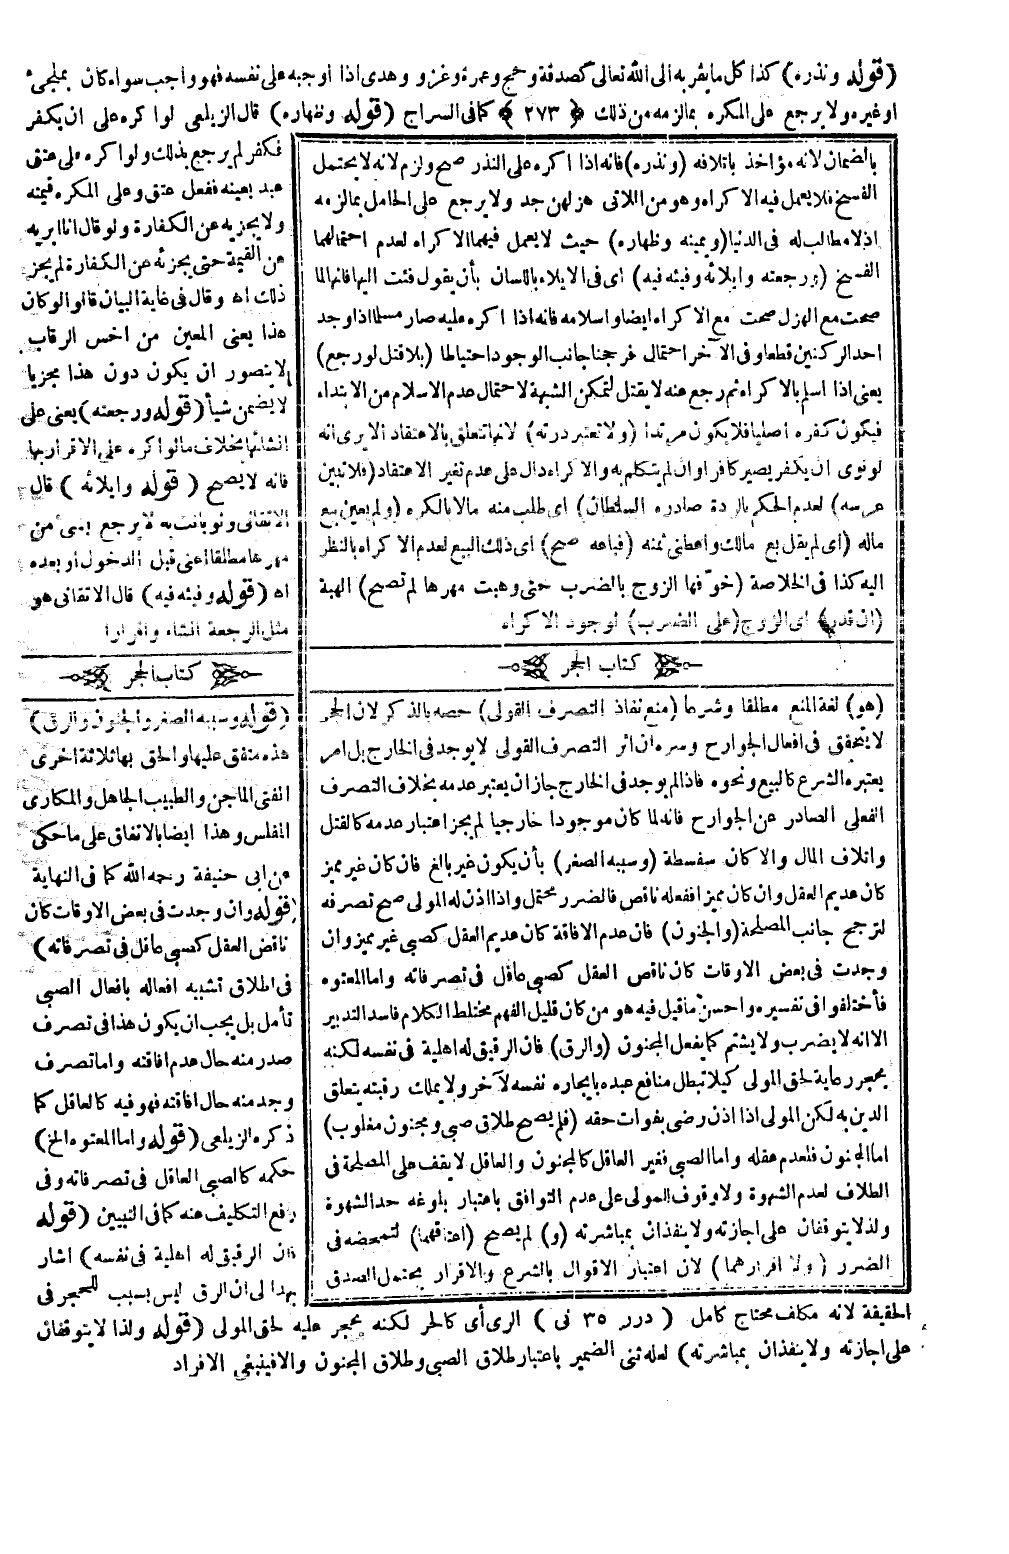 (قوله ونذره) كذا كل ما يقربه الى الله تعالى كصدقة وحج وعمرة وغزو وهدى اذا اوجبه على نفسه فهو واجب سواء كان بملجئ
او غيره ولا يرجع على المكره بما لزمه من ذلك ﴿ ٢٧٣ ﴾ كما فى السراج (قوله وظهاره) قال الزيلعى لو اكره على ان يكفر
بالضمان لانه مؤاخذ باتلافه (ونذره) فانه اذا اكره على النذر صح ولزم لانه لا يحتمل
الفسخ فلا يعمل فيه الاكراه وهو من اللاتى هزلهن جد ولا يرجع على الحامل بما لزمه
اذ لا مطالب له فى الدنيا (ويمينه وظهاره) حيث لا يعمل فيهما الاكراه لعدم احتمالهما
الفسخ (ورجعته وايلائه وفيئه فيه) اى فى الايلاء باللسان بأن يقول فئت اليها فانها لما
صحت مع الهزل صحت مع الاكراه ايضا واسلامه فانه اذا اكره عليه صار مسلما اذا وجد
احد الركنين قطعا وفى الآخر احتمال فرجحنا جانب الوجود احتياطا (بلا قتل لو رجع)
يعنى اذا اسلم بالاكراه ثم رجع عنه لا يقتل لتمكن الشبهة لاحتمال عدم الاسلام من الابتداء
فيكون كفره اصليا فلا يكون مرتدا (ولا تعتبر درته) لانها تتعلق بالاعتقاد الا يرى انه
لو نوى ان يكفر يصير كافرا وان لم يتكلم به والاكراه دال على عدم تغير الاعتقاد (فلا تبين
عرسه) لعدم الحكم بالردة صادره السلطان) اى طلب منه مالا بالكره (ولم يعين بيع
ماله (اى لم يقل بع مالك واعطنى ثمنه (فباعه صح) اى ذلك البيع لعدم الاكراه بالنظر
اليه كذا فى الخلاصة (خوّفها الزوج بالضرب حتى وهبت مهرها لم تصح) الهبة
(ان قدر) اى الزوج (على الضرب) لوجود الاكراه
كتاب الحجر
(هو) لغة المنع مطلقا وشرعا (منع نفاذ التصرف القولى) خصه بالذكر لان الحجر
لا يتحقق فى افعال الجوارح وسره ان اثر التصرف القولى لا يوجد فى الخارج بل امر
يعتبره الشرع كالبيع ونحوه فاذا لم يوجد فى الخارج جاز ان يعتبر عدمه بخلاف التصرف
الفعلى الصادر عن الجوارح فانه لما كان موجودا خارجيا لم يجز اعتبار عدمه كالقتل
واتلاف المال والا كان سفسطة (وسببه الصغر) بأن يكون غير بالغ فان كان غير مميز
كان عديم العقل وان كان مميزا ففعله ناقص فالضرر محتمل واذا اذن له المولى صح تصرفه
لترجح جانب المصلحة (والجنون) فان عدم الافاقة كان عديم العقل كصبى غير مميز وان
وجدت فى بعض الاوقات كان ناقص العقل كصبى عاقل فى تصرفاته واما المعتوه
فأختلفوا فى تفسيره واحسن ما قيل فيه هو من كان قليل الفهم مختلط الكلام فاسد التدبير
الا انه لا يضرب ولا يشتم كما يفعل المجنون (والرق) فان الرقيق له اهلية فى نفسه لكنه
يحجر رعاية لحق المولى كيلا تبطل منافع عبده بايجاره نفسه لآخر ولا يملك رقبته بتعلق
الدين به لكن المولى اذا اذن رضى بفوات حقه (فلم يصح طلاق صبى ومجنون مغلوب)
اما المجنون فلعدم عقله واما الصبى فغير العاقل كالمجنون والعاقل لا يقف على المصلحة فى
الطلاق لعدم الشهوة ولا وقوف للمولى على عدم التوافق باعتبار بلوغه حد الشهوة
ولذا لا يتوقفان على اجازته ولا ينفذان بمباشرته (و) لم يصح (اعتاقهما) لتمحضه فى
الضرر (ولا اقرارهما) لان اعتبار الاقوال بالشرع والاقرار يحتمل الصدق
فكفر لم يرجع بذلك ولو اكره على عتق
عبد بعينه ففعل عتق وعلى المكره قيمته
ولا يجزيه عن الكفارة ولو قال انا ابريه
عن القيمة حتى يجزئه عن الكفارة لم يجز
ذلك اه وقال فى غاية البيان قالوا لو كان
هذا يعنى المعين من اخس الرقاب
لا يتصور ان يكون دون هذا مجزيا
لا يضمن شيأ (قوله ورجعته) يعنى على
انشائها بخلاف ما لو اكره على الاقرار بها
فانه لا يصح (قوله وايلائه) قال
الاتقانى ولو بانت به لا يرجع بشئ من
مهرها مطلقا اعنى قبل الدخول او بعده
اه (قوله وفيئه فيه) قال الاتقانى هو
مثل الرجعة انشاء واقرارا
كتاب الحجر
(قوله وسببه الصغر والجنون والرق)
هذه متفق عليها والحق بها ثلاثة اخرى
المفتى الماجن والطبيب الجاهل والمكارى
المفلس وهذا ايضا بالاتفاق على ما حكى
عن ابى حنيفة رحمه الله كما فى النهاية
(قوله وان وجدت فى بعض الاوقات كان
ناقص العقل كصبى عاقل فى تصرفاته)
فى اطلاق تشبيه افعاله بافعال الصبى
تأمل بل يجب ان يكون هذا فى تصرف
صدر منه حال عدم افاقته واما تصرف
وجد منه حال افاقته فهو فيه كالعاقل كما
ذكره الزيلعى (قوله واما المعتوه الخ)
حكمه كالصبى العاقل فى تصرفاته وفى
رفع التكليف عنه كما فى التبيين (قوله
فان الرقيق له اهلية فى نفسه) اشار
بهذا الى ان الرق ليس بسبب للحجر فى
الحقيقة لانه مكلف محتاج كامل ( درر ٣٥ نى ) الرى أى كالحر لكنه يحجر عليه لحق المولى (قوله ولذا لا يتوقفان
على اجازته ولا ينفذان بمباشرته) لعله ثنى الضمير باعتبار طلاق الصبى وطلاق المجنون والا فينبغى الافراد